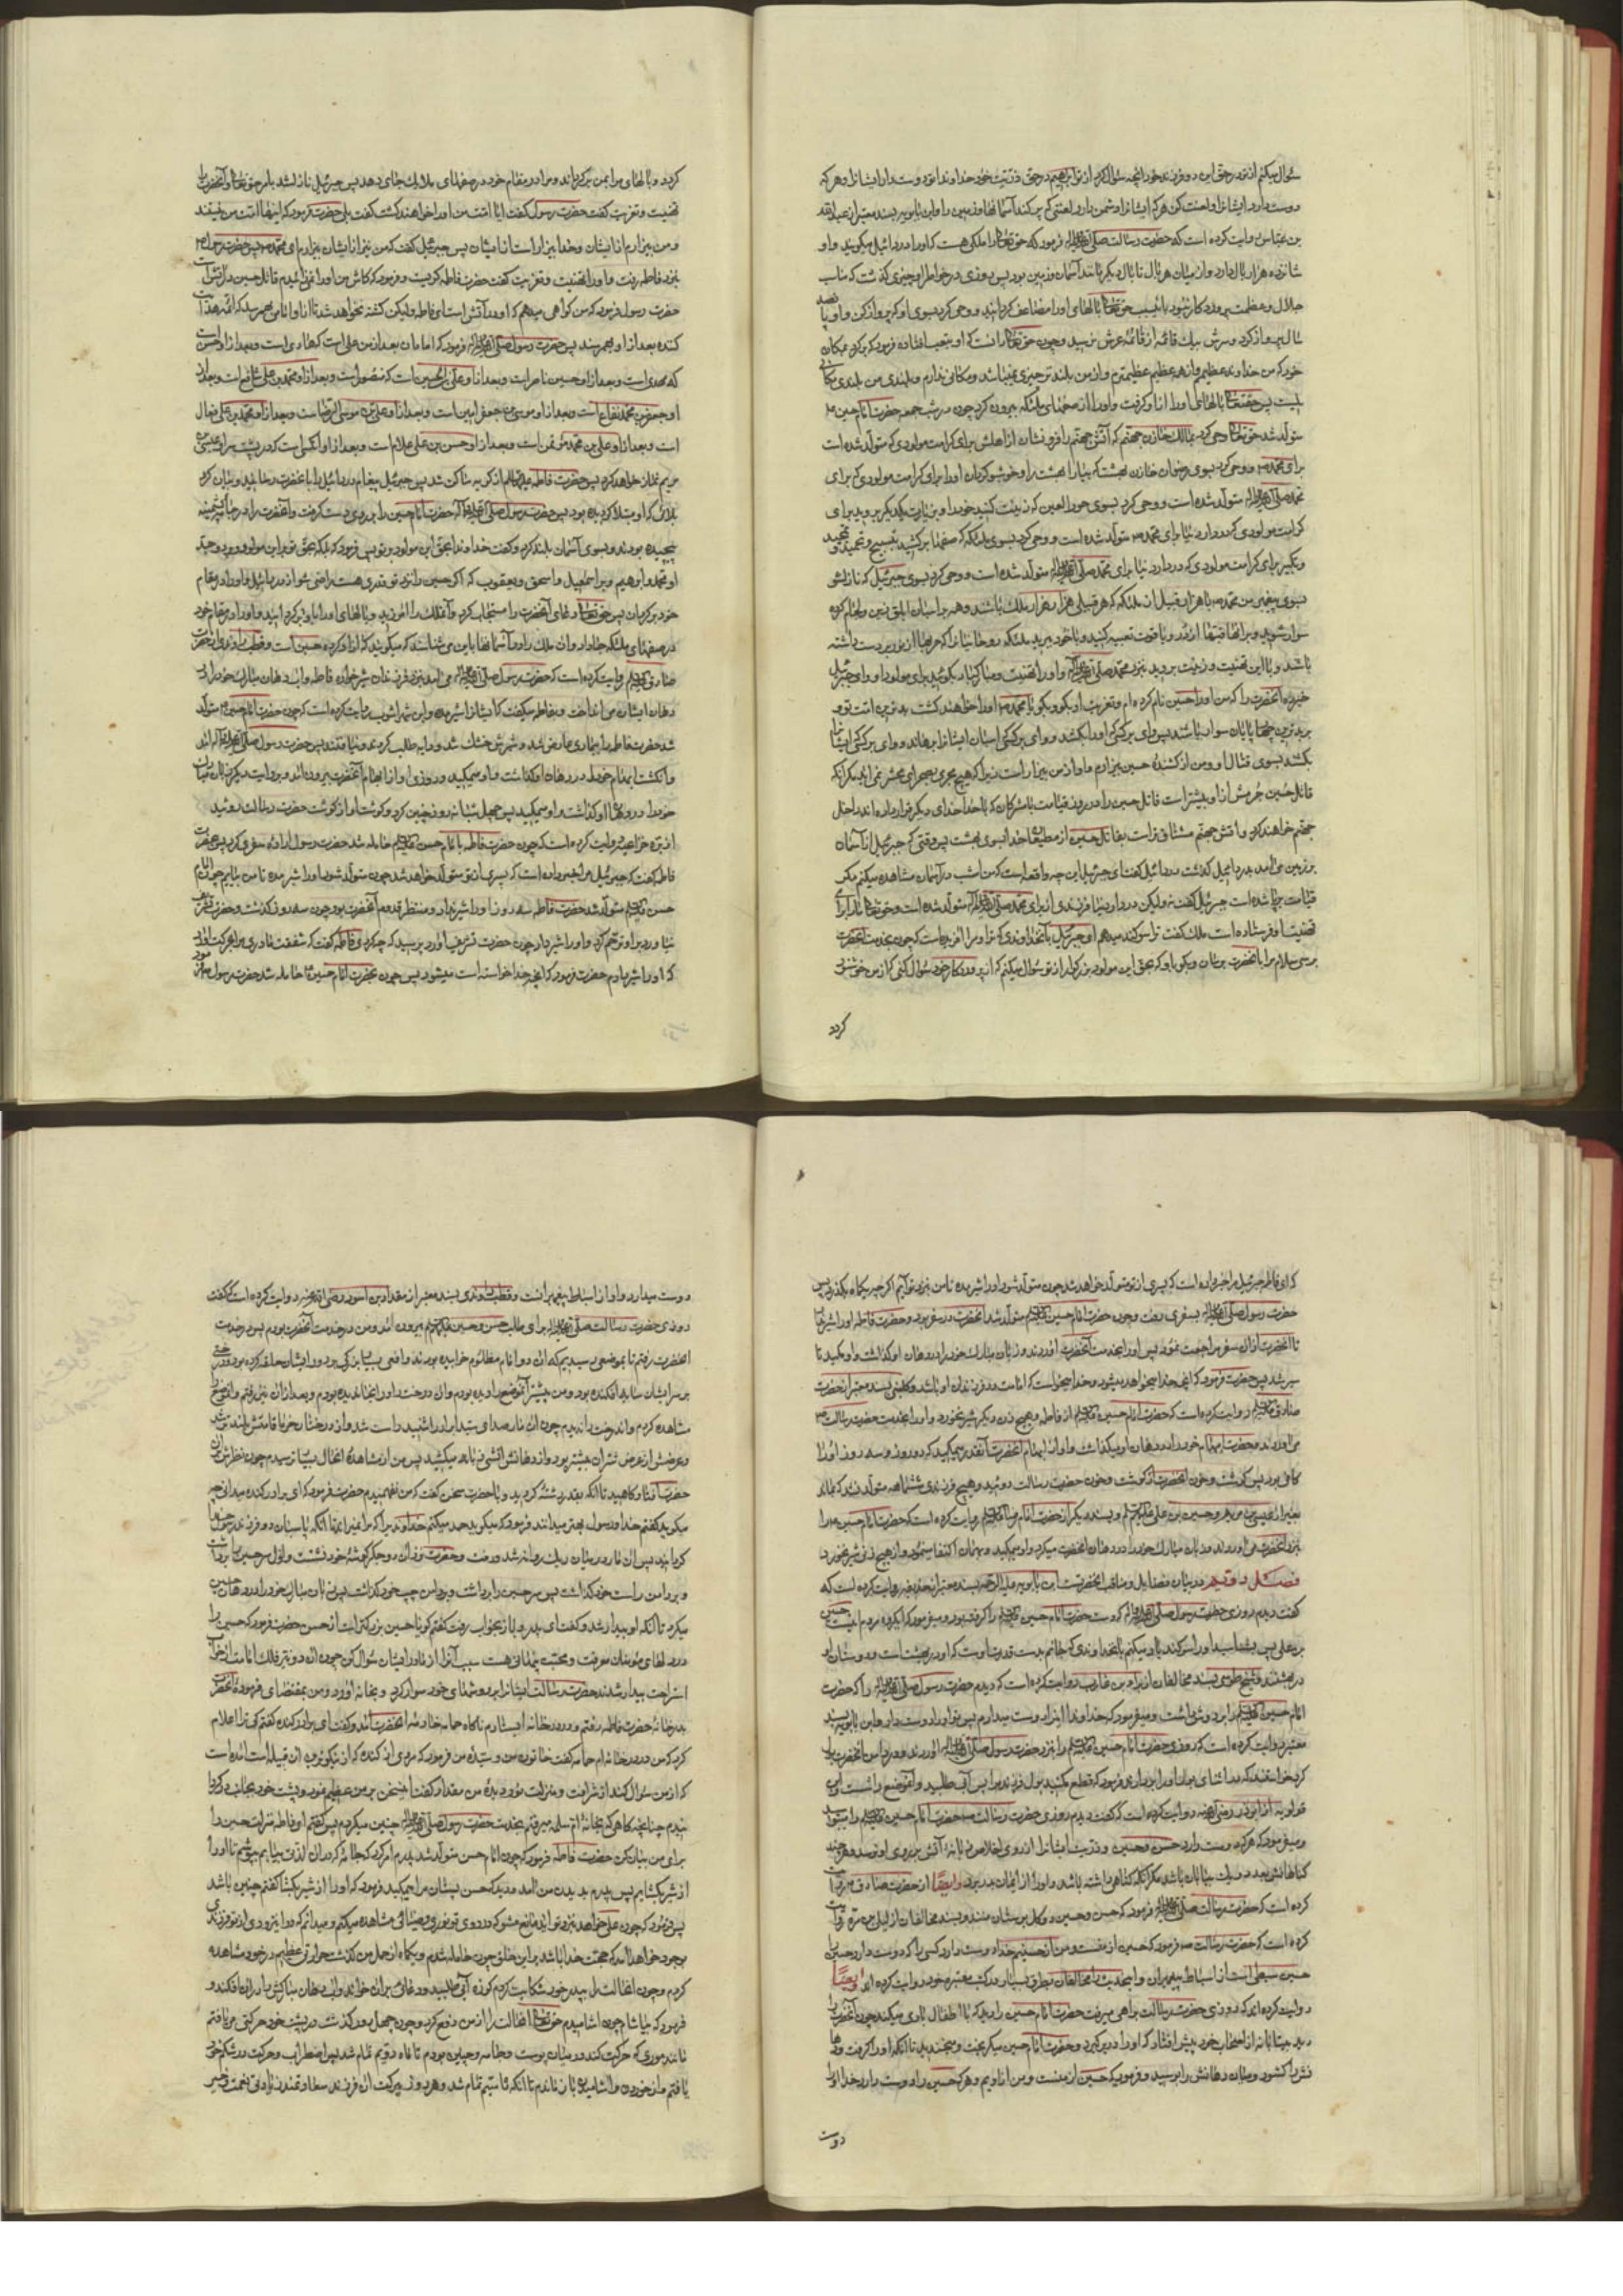 سؤال میکنم از تو در حق این دو فرزند خود آنچه سؤال کرد از تو ابراهیم در حق ذریت خود خداوندا تو دوست دار ایشانرا و هر که
دوست دارد ایشانرا و لعنت کن هر که ایشانرا دشمن دارد لعنتی که پر کند آسمانها و زمین را و ابن بابویه بسند معتبر از عبدالله
بن عباس روایت کرده است که حضرت رسالت صلی الله علیه و آله فرمود که حق تعالی را ملکی هست که او را دردائیل میکویند و او
شانزده هزار بال دارد و از میان هر بال تا بال دیکر مانند آسمان و زمین بود پس روزی در خاطر او چیزی کذشت که مناسب
جلال و عظمت پروردکار نبود باین سبب حق تعالی بالهای او را مضاعف کردانید و وحی کرد بسوی او که پرواز کن و او پانصد
سال پرواز کرد و سرش بیک قائمه از قائمهٔ عرش نرسید و چون حق تعالی دانست که او بتعب افتاده فرمود که برکرد بمکان
خود که من خداوند عظیمم و از همه عظیم عظیمترم و از من بلند تر چیزی نمیباشد و مکانی ندارم و بلندی من بلندی مکانی
نیست پس حقتعالی بالهای او را از او کرفت و او را از صفهای ملئکه بیرون کرد چون در شب جمعه حضرت امام حسین ع
متولد شد حق تعالی وحی کرد بمالک خازن جهنم که آتش جهنم را فرو نشان از اهلش برای کرامت مولودی که متولد شده است
برای محمد ص و وحی کرد بسوی رضوان خازن بهشت که بیارا بهشت را و خوشبو کردان او را برای کرامت مولودی که برای
محمد صلی الله علیه و آله متولد شده است و وحی کرد بسوی حور العین که زینت کنید خود را و بزیارت یکدیکر بروید برای
کرامت مولودی که در دار دنیا برای محمد ص متولد شده است و وحی کرد بسوی ملئکه که صفها برکشید بتسبیح و تحمید و تمجید
و تکبیر برای کرامت مولودی که در دار دنیا برای محمد صلی الله علیه و آله متولد شده است و وحی کرد بسوی جبرئیل که نازل شو
بسوی پیغمبر من محمد ص با هزار قبیل از ملئکه که هر قبیلی هزار هزار ملک باشند و همه بر اسبان ابلق زین و لجام کرده
سوار شوید و بر آنها قبتها از در و یاقوت تعبیه کنید و با خود ببرید ملئکه روحانیانرا که حربها از نور بر دست داشته
باشند و با این تهنیت و زینت بروید بنزد محمد صلی الله علیه و آله و او را تهنیت و مبارکباد بکوئید برای مولود او و ای جبرئیل
خبر ده آنحضرت را که من او را حسین نام کرده ام و تعزیت او بکو و بکو یا محمد ص او را خواهند کشت بدترین امت تو و
بدترین چهارپایان سوار باشند پس وای بر کشندهٔ او
قاتل حسین جرمش از او بیشتر است قاتل حسین را در روز قیامت با مشرکان که با خدا خدای دیکر قرار داده اند داخل
جهنم خواهند کرد و آتش جهنم مشتاق تر است بقاتل حسین از مطیعان خدا بسوی بهشت پس وقتی که جبرئیل از آسمان
بزمین می آمد بدردائیل کذشت دردائیل کفت ای جبرئیل این چه واقعه است که من امشب در آسمان مشاهده میکنم مکر
قیامت برپا شده است جبرئیل کفت نه ولیکن در دار دنیا فرزندی از برای محمد صلی الله علیه و آله متولد شده است و حق تعالی مرا برای
تهنیت او فرستاده است ملک کفت ترا سوکند میدهم ای جبرئیل بآنخداوندی که ترا و مرا آفریده است که چون بخدمت آنحضرت
برسی سلام مرا بآنحضرت برسان و بکو باو که بحق این مولود بزرکوار از تو سؤال میکنم که از پروردکار خود سؤال کنی که از من خوشنود
کردد
کردد و بالهای مرا بمن برکرداند و مرا در مقام خود در صفهای ملائک جای دهد پس جبرئیل نازل شد بامر حق تعالی و آنحضرت را
تهنیت و تعزیت کفت حضرت رسول کفت آیا امت من او را خواهند کشت کفت بلی حضرت فرمود که اینها امت من نیستند
و من بیزارم از ایشان و خدا بیزار است از ایشان پس جبرئیل کفت که من نیز از ایشان بیزارم ای محمد ص پس حضرت رسول ص
بنزد فاطمه رفت و او را تهنیت و تعزیت کفت حضرت فاطمه کریست و فرمود که کاش من او را نمی زائیدم قاتل حسین در آتش است
حضرت رسول فرمود که من کواهی میدهم که او در آتش است ای فاطمه ولیکن کشته نخواهد شد تا از او امامی بهم رسد که ائمه هدایت
کننده بعد از او بهم رسند پس حضرت رسول صلی الله علیه و آله فرمود که امامان بعد از من علی است که هادی است و بعد از او حسن
که مهدی است و بعد از او حسین ناصر است و بعد از او علی بن الحسین است که منصور است و بعد از او محمد بن علی شافع است و بعد از
او جعفر بن محمد نفاع است و بعد از او موسی بن جعفر امین است و بعد از او علی بن موسی الرضا است و بعد از او محمد بن علی فعال
است و بعد از او علی بن محمد مؤتمن است و بعد از او حسن بن علی علام است و بعد از او آنکسی است که در پشت سر او عیسی
مریم نماز خواهد کرد پس حضرت فاطمه علیها السلام از کریه ساکن شد پس جبرئیل پیغام دردائیل را بآنحضرت رسانید و بیان کرد
بلائی که او مبتلا کردیده بود پس حضرت رسول صلی الله علیه و آله حضرت امام حسین را بر روی دست کرفت و آنحضرت را در جامهٔ پشمینه
پیچیده بودند و بسوی آسمان بلند کرد و کفت خداوندا بحق این مولود بر تو پس فرمود که بلکه بحق تو بر این مولود و بر جد
او محمد و ابراهیم و بر اسمعیل و اسحق و یعقوب که اکر حسین را نزد تو قدری هست راضی شو از دردائیل و او را در مقام
خود برکردان پس حق تعالی دعای آنحضرت را مستجاب کرد و آنملک را آمرزید و بالهای او را باو برکردانید و او را در مقام خود
در صفهای ملئکه جا داد و آن ملک را در آسمانها باین می شناسند که میکویند که آزاد کردهٔ حسین است و قطب راوندی از حضرت
صادق علیه السلام روایت کرده است که حضرت رسول صلی الله علیه و آله می آمد بنزد فرزندان شیرخوارهٔ فاطمه و آب دهان مبارک خود را در
دهان ایشان می انداخت و بفاطمه میکفت که ایشانرا شیر مده و ابن شهراشوب روایت کرده است که چون حضرت امام حسین ع متولد
شد حضرت فاطمه را بیماری عارض شد و شیرش خشک شد و دایه طلب کردند و نیافتند پس حضرت رسول صلی الله علیه و آله می آمد
و انکشت ابهام خود را در دهان او کذاشت و او میمکید و روزی او از ابهام آنحضرت بیرون می آمد و بروایت دیکر زبان مبارک
خود را در دهان او کذاشت و او میمکید پس چهل شبانه روز چنین کرد و کوشت او از کوشت حضرت رسالت روئید
از برهٔ خزاعی روایت کرده است که چون حضرت فاطمه بامام حسن علیه السلام حامله شد حضرت رسول ارادهٔ سفری کرد پس بحضرت
فاطمه کفت که جبرئیل مرا خبر داده است که پسری از تو متولد خواهد شد چون متولد شود او را شیر مده تا من بیایم چون امام
حسن علیه السلام متولد شد حضرت فاطمه سه روز او را شیر نداد و منتظر قدوم آنحضرت بود چون سه روز کذشت و حضرت تشریف
نیاورد بر او ترحم کرد و او را شیر داد چون حضرت تشریف آورد پرسید که چه کردی فاطمه کفت که شفقت مادری مرا بحرکت آورد
که او را شیر دادم حضرت فرمود که آنچه خدا خواسته است میشود پس چون بحضرت امام حسین ع حامله شد حضرت رسول فرمود
که ای فاطمه جبرئیل مرا خبر داده است که پسری از تو متولد خواهد شد چون متولد شود او را شیر مده تا من بنزد تو آیم اکر چه یکماه بکذرد پس
حضرت رسول صلی الله علیه و آله بسفری رفت و چون حضرت امام حسین علیه السلام متولد شد آنحضرت در سفر بود و حضرت فاطمه او را شیر نداد
تا آنحضرت از آن سفر مراجعت نمود پس او را بخدمت آنحضرت آوردند و زبان مبارک خود را در دهان او کذاشت و او مکید تا
سیر شد پس حضرت فرمود که آنچه خدا میخواهد میشود و خدا میخواست که امامت در فرزندان او باشد و کلینی بسند معتبر از حضرت
صادق علیه السلام روایت کرده است که حضرت امام حسین علیه السلام از فاطمه و هیچ زن دیکر شیر نخورد و او را بخدمت حضرت رسالت ص
می آوردند و حضرت ابهام خود را در دهان او میکذاشت و او از ابهام آنحضرت آنقدر میمکید که دو روز و سه روز او را
کافی بود پس کوشت و خون آنحضرت از کوشت و خون حضرت رسالت روئید و هیچ فرزندی ششماهه متولد نشد که بماند
بغیر از عیسی بن مریم و حسین بن علی علیهم السلام و بسند دیکر از حضرت امام رضا علیه السلام روایت کرده است که حضرت امام حسین ع را
بنزد آنحضرت می آوردند و زبان مبارک خود را در دهان آنحضرت میکرد و او میمکید و بهمان اکتفا مینمود و از هیچ زنی شیر نخورد
فصل دویم در بیان فضایل و مناقب آنحضرتست ابن بابویه علیه الرحمه بسند معتبر از حذیفه روایت کرده است که
کفت دیدم روزی حضرت رسول صلی الله علیه و آله که دست حضرت امام حسین علیه السلام را کرفته بود و میفرمود که ایکروه مردم اینست حسین
بن علی پس بشناسید او را سوکند یاد میکنم بآنخداوندی که جانم بدست قدرت اوست که او در بهشت است و دوستان او
در بهشتند و شیخ طوسی بسند مخالفان از براء بن عازب روایت کرده است که دیدم حضرت رسول صلی الله علیه و آله را که حضرت
امام حسین علیه السلام را بر دوش داشت و میفرمود که خداوندا من او را دوست میدارم پس تو او را دوست دار و ابن بابویه بسند
معتبر روایت کرده است که روزی حضرت امام حسین علیه السلام را بنزد حضرت رسول صلی الله علیه و آله آوردند و در دامن آنحضرت بول
کرد خواستند که در اثنای بول او را بردارند فرمود که قطع مکنید بول فرزند مرا پس آب طلبید و آنموضع را شست و ابن
قولویه از ابوذر رضی الله عنه روایت کرده است که کفت دیدم روزی حضرت رسالت ص حضرت امام حسین علیه السلام را میبوسید
و میفرمود که هر که دوست دارد حسن و حسین و ذریت ایشانرا از روی اخلاص زبانهٔ آتش بروی او نرسد و هر چند
کناهانش بعدد ریک بیابان باشد مکر آنکه کناهی داشته باشد و او را از ایمان بدر برد و ایضاً از حضرت صادق ع روایت
کرده است که حضرت رسالت صلی الله علیه و آله فرمود که حسن و حسین دو کل بوستان منند و بسند مخالفان از یعلی بن مره روایت
کرده است که حضرت رسالت ص فرمود که حسین از منست و من از حسینم خدا دوست دارد کسی را که دوست دارد حسین را
حسین سبطی است از اسباط پیغمبران و اینحدیث را مخالفان بطرق بسیار در کتب معتبرهٔ خود روایت کرده اند ایضاً
روایت کرده اند که روزی حضرت رسالت براهی میرفت حضرت امام حسین را دید که با اطفال بازی میکند چون آنحضرت را
دید بیتابانه از اصحاب خود پیش افتاد که او را در بر کیرد و حضرت امام حسین میکریخت و میخندید تا آنکه او را کرفت و دستها
و میان دهانش را بوسید و فرمود که حسین از منست و من از اویم و هر که حسین را دوست دارد خدا او را
دوست
دوست میدارد و او از اسباط پیغمبرانست و قطب راوندی بسند معتبر از مقداد بن اسود رضی الله عنه روایت کرده است که کفت
روزی حضرت رسالت صلی الله علیه و آله برای طلب حسن و حسین علیهما السلام بیرون آمد و من در خدمت آنحضرت بودم پس در خدمت
آنحضرت رفتم تا بموضعی رسیدیم که آن دو امام مظلوم خوابیده بودند و افعی بسیار بزرکی بر دور ایشان حلقه کرده بود و درختی
بر سر ایشان سایه افکنده بود و من پیشتر آنموضع را دیده بودم و آن درخت را در آنجا ندیده بودم و بعد از آن نیز رفتم و آندرخت
مشاهده کردم و آندرخت را ندیدم چون آن مار صدای سید ابرار را شنید راست شد و از درختان خرما قامتش بلند تر شد
و عرضش از عرض شتران بیشتر بود و از دهانش آتشی زبانه میکشید پس من از مشاهدهٔ آنحال بسیار ترسیدم چون نظرش بر آن
حضرت افتاد کاهید تا آنکه بقدر رشتهٔ کردید و با حضرت سخن کفت که من نفهمیدم حضرت فرمود که ای برادر کنده میدانی چه
میکوید کفتم خدا و رسول بهتر میدانند فرمود که میکوید حمد میکنم خداوندیرا که مرا نمیرانید تا آنکه پاسبان دو فرزند رسول خدا
کردانید پس آن مار در میان ریک روانه شد و رفت و حضرت نزد آن دو جکر کوشهٔ خود نشست و اول سر حسین را برداشت
و بر دامن راست خود کذاشت پس سر حسن را برداشت و بر دامن چپ خود کذاشت پس زبان مبارک خود را در دهان حسین
میکرد تا آنکه او بیدار شد و کفت ای پدر و باز بخواب رفت کفتم کویا حسین بزرکتر است از حسن حضرت فرمود که حسین را
در دلهای مؤمنان معرفت و محبت پنهانی هست سبب آنرا از مادر ایشان سؤال کن چون آن دو نیر فلک امامت از خواب
استراحت بیدار شدند حضرت رسالت ایشانرا بر دوشهای خود سوار کرد و بخانه آورد و من بمقتضای فرمودهٔ آنحضرت
بدر خانهٔ حضرت فاطمه رفتم و در در خانه ایستادم ناکاه حمامه خادمهٔ آنحضرت آمد و کفت ای برادر کنده کفتم کی ترا اعلام
کرد که من در در خانه ام حمامه کفت خاتون من و سیدهٔ من فرمود که مردی از کنده که از نیکوترین آن قبیله است آمده است
که از من سؤال کند از شرافت و منزلت نور دیدهٔ من مقداد کفت اینسخن بر من عظیم نمود و پشت خود بجانب در کردم
چنانچه کاهی که بخانهٔ ام سلمه میرفتم بخدمت حضرت رسول صلی الله علیه و آله چنین میکردم پس کفتم ای فاطمه منزلت حسین را
برای من بیان کن حضرت فاطمه فرمود که چون امام حسن متولد شد پدرم امر کرد که جامهٔ که در آن لذتی بیابم نپوشم تا او را
از شیر بکشایم پس پدرم بدیدن من آمد و دید که حسن پستان مرا میمکید فرمود که او را از شیر بکشا کفتم چنین باشد
پس فرمود که چون علی خواهد بنزد تو آید مانع مشو که در روی تو نوری و ضیائی مشاهده میکنم و میدانم که در این زودی از تو فرزندی
بوجود خواهد آمد که حجت خدا باشد بر این خلق چون حامله شدم و یکماه از حمل من کذشت حرارتی عظیم در خود مشاهده
کردم و چون آنحالت را به پدر خود شکایت کردم کوزه آبی طلبید و دعائی بر آن خواند و آب دهان مبارکش را در آن افکند و
فرمود که بیاشام چون آشامیدم حق تعالی آنحالت را از من دفع کرد و چون چهل روز کذشت در پشت خود حرکتی می یافتم
مانند موری که حرکت کند در میان پوست و جامه و چنین بودم تا ماه دویم تمام شد پس اضطراب و حرکت در شکم خود
یافتم و از خوردن و آشامیدن باز نماندم تا آنکه ماه سیم تمام شد و هر روز ببرکت آن فرزند سعادتمند زیادتی نعمت و خیر